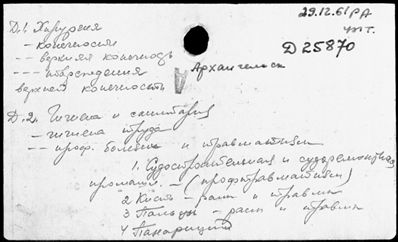 29.12.61 РА
чит.
Д 25870
Д.1. Хирургия
- конечностей
-- верхняя конечность
--- повреждения
верхней конечность
Архангельск
Д.2. Гигиена и санитария
- гигиена труда
-- проф. болезни и травматизм
1. Судостроительная и судоремонтная
промышл. - (профтравматизм)
2 Кисть - раны и травмы
3 Пальцы - раны и травмы
4 Панариций